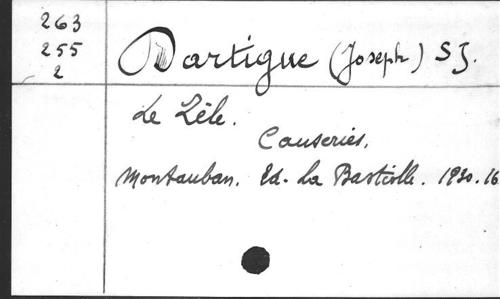 263
255
2
Dartigue (Joseph) S J.
Le Zèle.
Causeries.
Montauban. Ed. La Bastiolle. 1930. 16